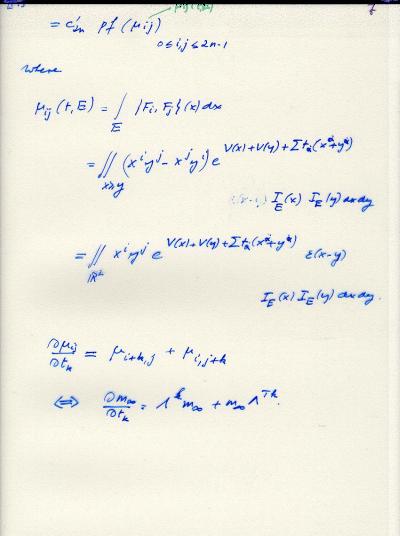 = c'₂ₙ pf (μij)
0≤i,j≤2n-1
7
where
μij (t,E) = ∫_E {Fi, Fj}(x) dx
= ∬_{x≥y} (x^i y^j - x^j y^i) e^{V(x)+V(y)+Σt_α(x^α+y^α)}
I_E(x) I_E(y) dx dy
= ∬_{ℝ²} x^i y^j e^{V(x)+V(y)+Σt_α(x^α+y^α)} ε(x-y)
I_E(x) I_E(y) dx dy.
∂μij/∂t_k = μ_{i+k,j} + μ_{i,j+k}
⇔ ∂m_∞/∂t_k = Λ^k m_∞ + m_∞ Λ^{Tk}.